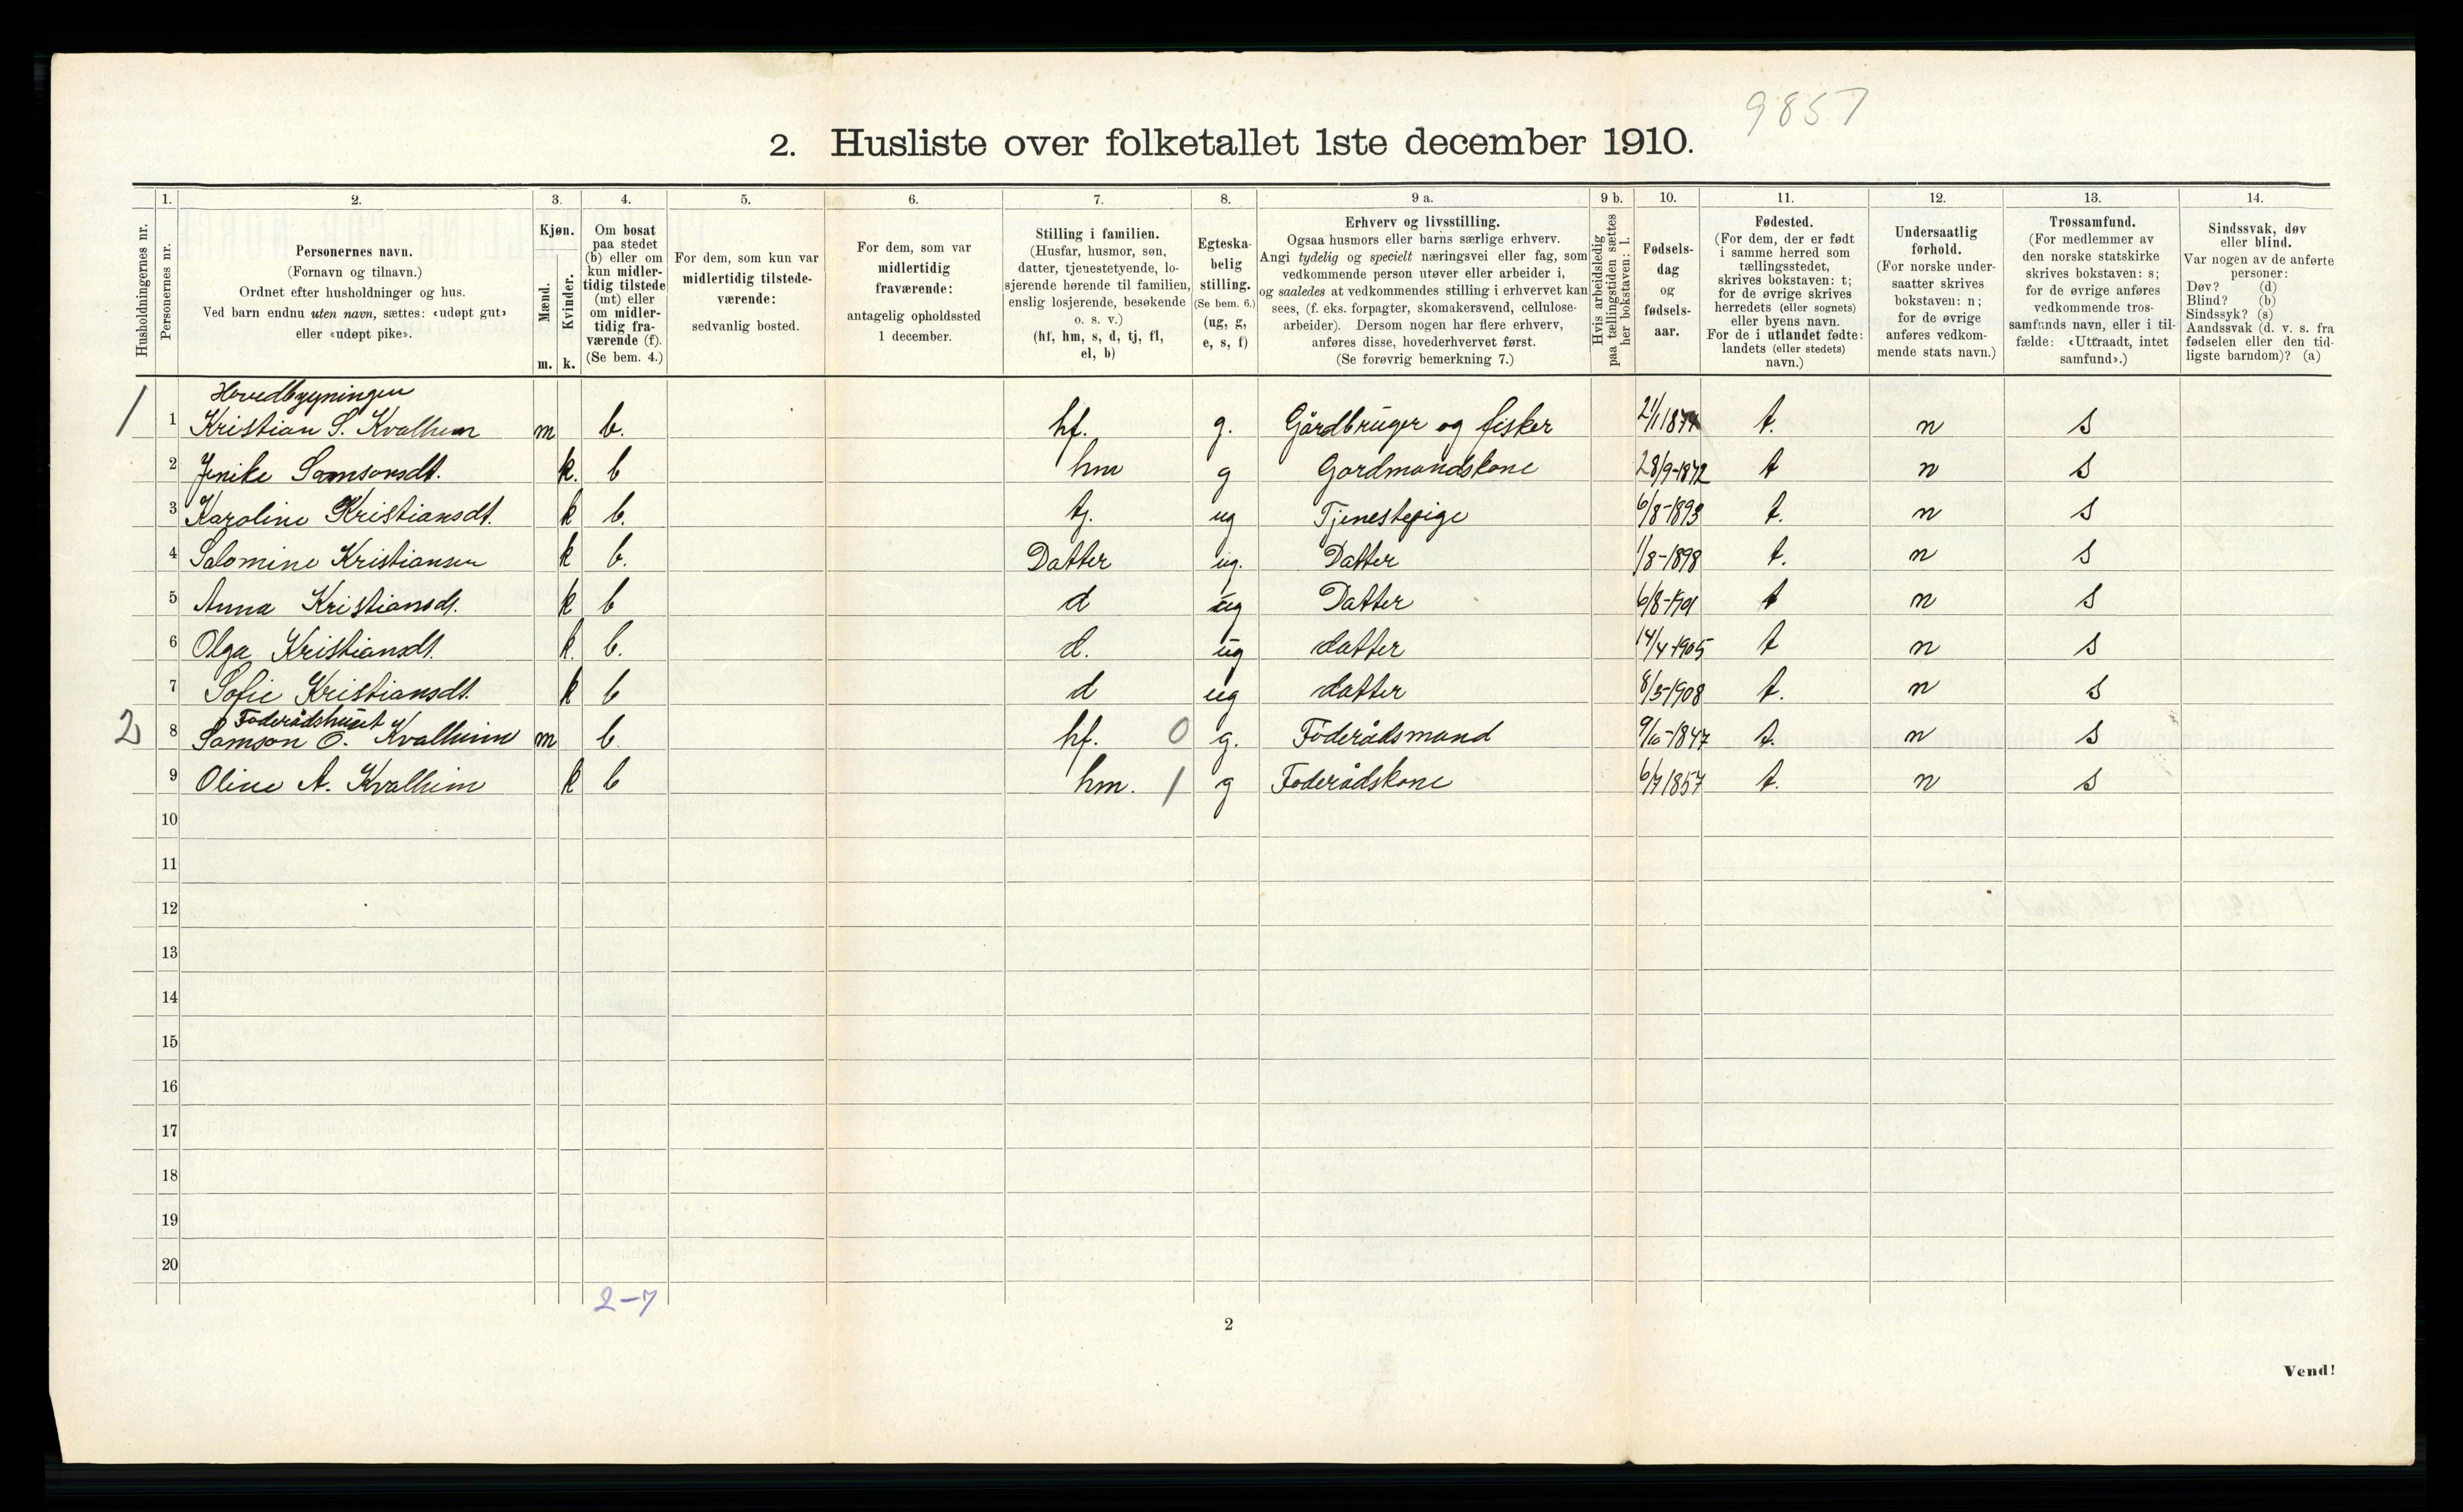 9857
2. Husliste over folketallet 1ste december 1910.
Husholdningernes nr.
1.
Personernes nr.
2.
Personernes navn.
(Fornavn og tilnavn.)
Ordnet efter husholdninger og hus.
Ved barn endnu uten navn, sættes: «udøpt gut»
eller «udøpt pike».
3.
Kjøn.
Mænd.
m.
Kvinder.
k.
4.
Om bosat
paa stedet
(b) eller om
kun midler-
tidig tilstede
(mt) eller
om midler-
tidig fra-
værende (f).
(Se bem. 4.)
5.
For dem, som kun var
midlertidig tilstede-
værende:
sedvanlig bosted.
6.
For dem, som var
midlertidig
fraværende:
antagelig opholdssted
1 december.
7.
Stilling i familien.
(Husfar, husmor, søn,
datter, tjenestetyende, lo-
sjerende hørende til familien,
enslig losjerende, besøkende
o. s. v.)
(hf, hm, s, d, tj, fl,
el, b)
8.
Egteska-
belig
stilling.
(Se bem. 6.)
(ug, g,
e, s, f)
9 a.
Erhverv og livsstilling.
Ogsaa husmors eller barns særlige erhverv.
Angi tydelig og specielt næringsvei eller fag, som
vedkommende person utøver eller arbeider i,
og saaledes at vedkommendes stilling i erhvervet kan
sees, (f. eks. forpagter, skomakersvend, cellulose-
arbeider). Dersom nogen har flere erhverv,
anføres disse, hovederhvervet først.
(Se forøvrig bemerkning 7.)
9 b.
Hvis arbeidsledig
paa tællingstiden sættes
her bokstaven: l.
10.
Fødsels-
dag
og
fødsels-
aar.
11.
Fødested.
(For dem, der er født
i samme herred som
tællingsstedet,
skrives bokstaven: t;
for de øvrige skrives
herredets (eller sognets)
eller byens navn.
For de i utlandet fødte:
landets (eller stedets)
navn.)
12.
Undersaatlig
forhold.
(For norske under-
saatter skrives
bokstaven: n;
for de øvrige
anføres vedkom-
mende stats navn.)
13.
Trossamfund.
(For medlemmer av
den norske statskirke
skrives bokstaven: s;
for de øvrige anføres
vedkommende tros-
samfunds navn, eller i til-
fælde: «Uttraadt, intet
samfund».)
14.
Sindssvak, døv
eller blind.
Var nogen av de anførte
personer:
Døv? (d)
Blind? (b)
Sindssyk? (s)
Aandssvak (d. v. s. fra
fødselen eller den tid-
ligste barndom)? (a)
Hovedbygningen
1 1 Kristian S. Kvalheim m b. hf. g. Gårdbruger og fisker t. n s
2 Jenike Samsonsdt. k. b hm g Gardmandskone 28/9-1872 t n s
3 Karoline Kristiansdt. k b. tj. ug Tjenestepige 6/8-1893 t. n s
4 Salomine Kristiansen k b. Datter ug. Datter 1/8-1898 t. n s
5 Anna Kristiansdt. k b d ug Datter 6/8-1901 t n s
6 Olga Kristiansdt. k. b. d. ug datter 14/4-1905 t n s
7 Sofie Kristiansdt. k b d ug datter 8/5-1908 t. n s
Føderådshuset
2 8 Samson O. Kvalheim m b. hf. 0 g. Føderådsmand 9/10-1847 t. n s
9 Oline A. Kvalheim k b hm. 1 g Føderådskone 6/7 1857 t. n s
10
11
12
13
14
15
16
17
18
19
20
2-7
2
Vend!